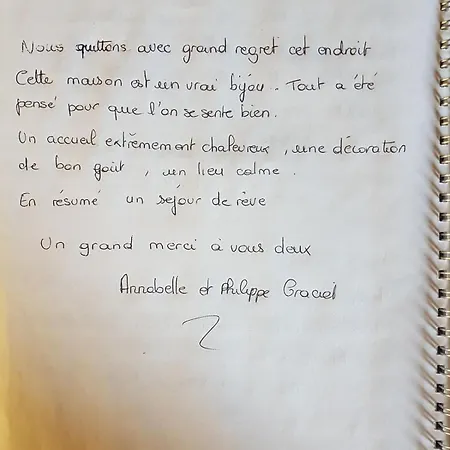 Nous quittons avec grand regret cet endroit
Cette maison est un vrai bijou. Tout a été
pensé pour que l'on se sente bien.
Un accueil extrêmement chaleureux, une décoration
de bon goût, un lieu calme.
En résumé un séjour de rêve
Un grand merci à vous deux
Annabelle et Philippe